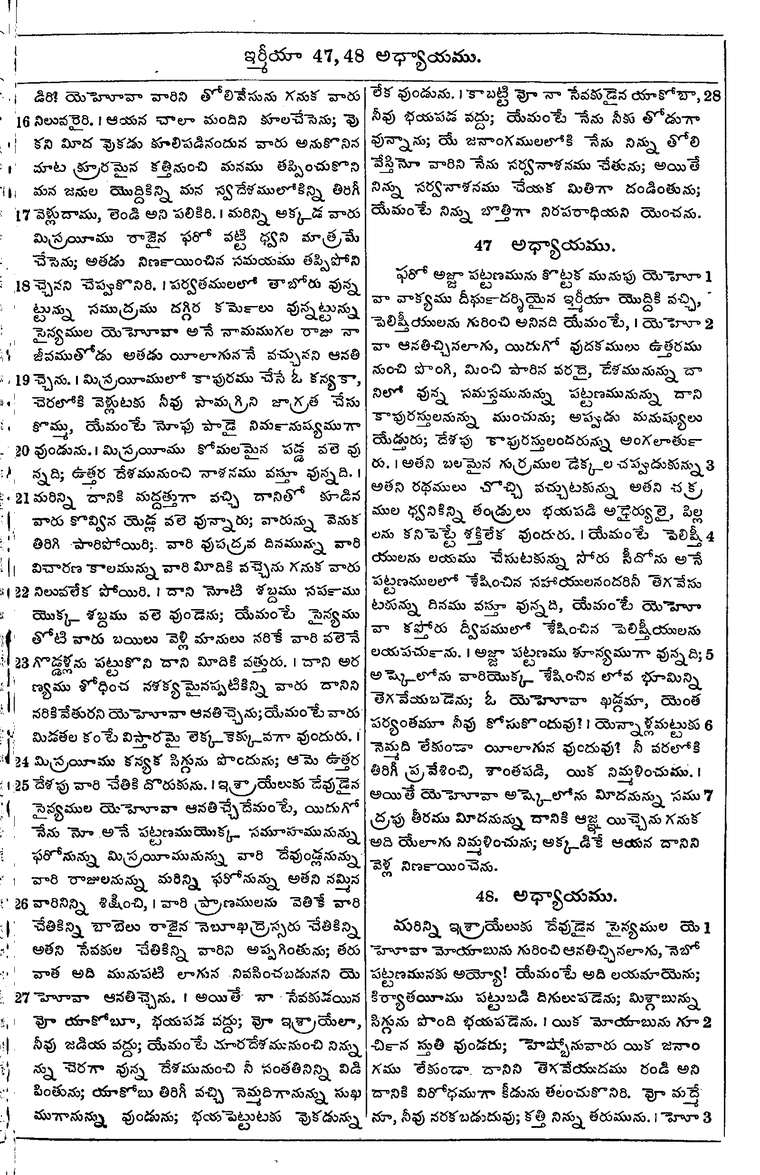 ఇర్మీయా 47, 48 అధ్యాయము.
డిరి? యెహెూవా వారిని తోలివేసును గనుక వారు
16 నిలువరైరి. । ఆయన చాలా మందిని కూలచేసెను; వొ
కని మీద వొకడు కూలిపడినందున వారు అనుకొనిన
మాట క్రూరమైన కత్తినుంచి మనము తప్పించుకొని
మన జనుల యొద్దికిన్ని మన స్వదేశములోకిన్ని తిరిగీ
17 వెళ్లుదాము, లెండి అని పలికిరి. । మరిన్ని అక్కడ వారు
మిస్రయీము రాజైన ఫరో వట్టి ధ్వని మాత్రమే
చేసెను; అతడు నిర్ణాయించిన సమయము తప్పిపోని
18 చ్చెనని చెప్పుకొనిరి. । పర్వతములలో తాబోరు వున్న
ట్టున్ను సముద్రము దగ్గిర కర్మెలు వున్నట్టున్ను
సైన్యముల యెహెూవా అనే నామముగల రాజు నా
జీవముతోడు అతడు యీలాగుననే వచ్చునని ఆనతి
19 చ్చెను. । మిస్రయీములో కాపురము చేసే ఓ కన్యకా,
చెరలోకి వెళ్లుటకు నీవు సామగ్రిని జాగ్రత చేసు
కొమ్ము, యేమంటే మోఫు పాడై నిర్మనుష్యముగా
20 వుండును. । మిస్రయీము కోమలమైన పడ్డ వలె వు
న్నది; ఉత్తర దేశమునుంచి నాశనము వస్తూ వున్నది. ।
21 మరిన్ని దానికి మద్దత్తుగా వచ్చి దానితో కూడిన
వారు కొవ్విన యెడ్ల వలె వున్నారు; వారున్ను వెనుక
తిరిగి పారిపోయిరి; వారి వుపద్రవ దినమున్ను వారి
విచారణ కాలమున్ను వారి మీదికి వచ్చెను గనుక వారు
22 నిలువలేక పోయిరి. । దాని నోటి శబ్దము సర్పము
యొక్క శబ్దము వలె వుండెను; యేమంటే సైన్యము
తోటి వారు బయిలు వెళ్లి మానులు నరికే వారి వలెనే
23 గొడ్డళ్లను పట్టుకొని దాని మీదికి వత్తురు. । దాని అర
ణ్యము శోధించ నశక్యమైనప్పటికిన్ని వారు దానిని
నరికివేతురని యెహెూవా ఆనతిచ్చెను; యేమంటే వారు
మిడతల కంటే విస్తారమై లెక్కకెక్కువగా వుందురు. ।
24 మిస్రయీము కన్యక సిగ్గును పొందును; ఆమె ఉత్తర
25 దేశపు వారి చేతికి దొరుకును. । ఇశ్రాయేలుకు దేవుడైన
సైన్యముల యెహెూవా ఆనతిచ్చేదేమంటే, యిదుగో
నేను నో అనే పట్టణముయొక్క సమూహమునున్ను
ఫరోనున్ను మిస్రయీమునున్ను వారి దేవుండ్లనున్ను
వారి రాజులనున్ను మరిన్ని ఫరోనున్ను అతని నమ్మిన
26 వారినిన్ని శిక్షించి, । వారి ప్రాణములను వెతికే వారి
చేతికిన్ని బాబెలు రాజైన నెబూఖద్రెస్సరు చేతికిన్ని
అతని సేవకుల చేతికిన్ని వారిని అప్పగింతును; తరు
వాత అది మునుపటి లాగున నివసించబడునని యె
27 హెూవా ఆనతిచ్చెను. । అయితే నా సేవకుడయిన
వో యాకోబూ, భయపడ వద్దు; వో ఇశ్రాయేలా,
నీవు జడియ వద్దు; యేమంటే దూరదేశమునుంచి నిన్ను
న్ను చెరగా వున్న దేశమునుంచి నీ సంతతినిన్ని విడి
పింతును; యాకోబు తిరిగీ వచ్చి నెమ్మదిగానున్ను సుఖ
ముగానున్ను వుండును; భయపెట్టుటకు వొకడున్ను
లేక వుండును. । కాబట్టి వో నా సేవకుడైన యాకోబా, 28
నీవు భయపడ వద్దు; యేమంటే నేను నీకు తోడుగా
వున్నాను; యే జనాంగములలోకి నేను నిన్ను తోలి
వేస్తినో వారిని నేను సర్వనాశనము చేతును; అయితే
నిన్ను సర్వనాశనము చేయక మితిగా దండింతును;
యేమంటే నిన్ను బొత్తిగా నిరపరాధియని యెంచను.
47 అధ్యాయము.
ఫరో అజ్జా పట్టణమును కొట్టక మునుపు యెహెూ 1
వా వాక్యము దీర్ఘదర్శియైన ఇర్మీయా యొద్దికి వచ్చి,
పెలిష్తీయులను గురించి అనినది యేమంటే, । యెహెూ 2
వా ఆనతిచ్చినలాగు, యిదుగో వుదకములు ఉత్తరము
నుంచి పొంగి, మించి పారిన వరదై, దేశమునున్ను దా
నిలో వున్న సమస్తమునున్ను పట్టణమునున్ను దాని
కాపురస్తులనున్ను ముంచును; అప్పుడు మనుష్యులు
యేడ్తురు; దేశపు కాపురస్తులందరున్ను అంగలార్తు
రు. । అతని బలమైన గుర్రముల డెక్కల చప్పుదుకున్ను 3
అతని రథములు చొచ్చి వచ్చుటకున్ను అతని చక్ర
ముల ధ్వనికిన్ని తండ్రులు భయపడి అధైర్యులై, పిల్ల
లను కనిపెట్టే శక్తిలేక వుందురు. । యేమంటే పెలిష్తీ 4
యులను లయము చేసుటకున్ను సోరు సీదోను అనే
పట్టణములలో శేషించిన సహాయులనందరినీ తెగవేసు
టకున్ను దినము వస్తూ వున్నది, యేమంటే యెహెూ
వా కఫ్తోరు ద్వీపములో శేషించిన పెలిష్తీయులను
లయపరచును. । అజ్జా పట్టణము శూన్యముగా వున్నది; 5
అష్కెలోను వారియొక్క శేషించిన లోవ భూమిన్ని
తెగవేయబడెను; ఓ యెహెూవా ఖడ్గమా, యెంత
పర్యంతమూ నీవు కోసుకొందువు? । యెన్నాళ్లమట్టుకు 6
నెమ్మది లేకుండా యీలాగున వుందువు? నీ వరలోకి
తిరిగీ ప్రవేశించి, శాంతపడి, యిక నిమ్మళించుము. ।
అయితే యెహెూవా అష్కెలోను మీదనున్ను సము 7
ద్రపు తీరము మీదనున్ను దానికి ఆజ్ఞ యిచ్చెను గనుక
అది యేలాగు నిమ్మళించును; అక్కడికే ఆయన దానిని
వెళ్ల నిర్ణాయించెను.
48. అధ్యాయము.
మరిన్ని ఇశ్రాయేలుకు దేవుడైన సైన్యముల యె 1
హెూవా మోయాబును గురించి ఆనతిచ్చినలాగు, నెబో
పట్టణమునకు అయ్యో! యేమంటే అది లయమాయెను;
కిర్యాతయీము పట్టుబడి దిగులుపడెను; మిశ్గాబున్ను
సిగ్గును పొంది భయపడెను. । యిక మోయాబును గూ 2
ర్చిన స్తుతి వుండదు; హెష్బోనువారు యిక జనాం
గము లేకుండా దానిని తెగవేయుదము రండి అని
దానికి విరోధముగా కీడును తలంచుకొనిరి. వో మద్మే
నూ, నీవు నరకబడుదువు; కత్తి నిన్ను తరుమును. । హెూ 3